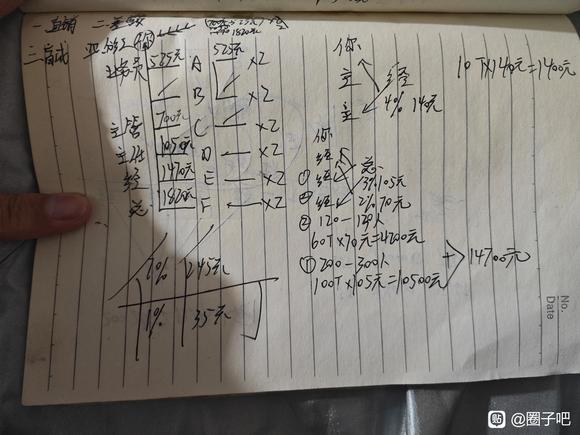 一直销
三
业务员 525元 A 525元 ×2
B ×2
主管 700元 C ×2
主任 1050元 D ×2
经 1470元 E ×2
总 1820元 F ×2
7% 245元
1% 35元
你
主 经
主 4% 140元
10T×140元=1400元
你
经
① 经 总
3% 105元
② 经 2% 70元
② 120-130人
60T×70元=4200元
① 200-300人
100T×105元=10500元
+ 14700元
No.
Date
贴 @圈子吧